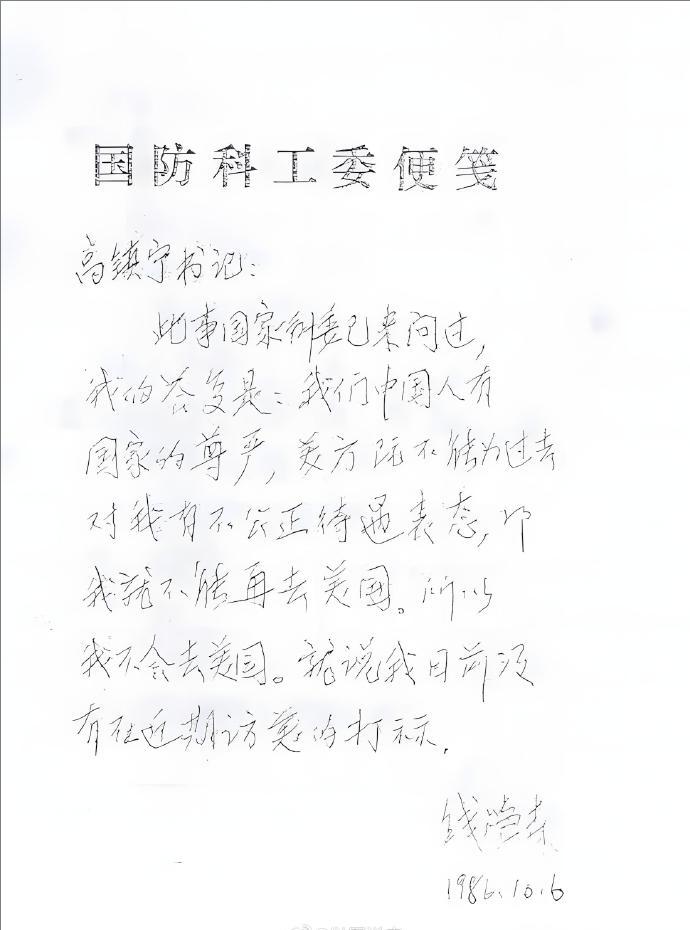 国防科工委便笺
高镇宁书记:
此事国家科委已来问过,
我的答复是:我们中国人有
国家的尊严,美方既不能为过去
对我有不公正待遇表态,那
我就不能再去美国。所以
我不会去美国。就说我目前没
有在近期访美的打示。
钱学森
1986.10.6